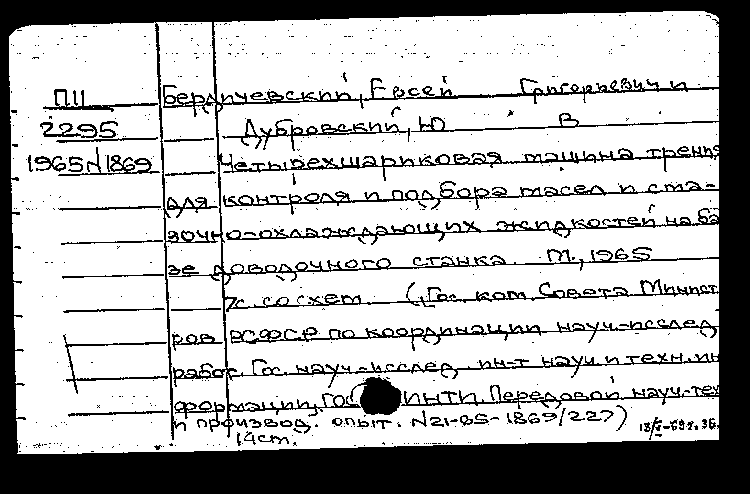 П11 Бердичевский, Евсей Григорьевич и
2295 Дубровский, Ю В
1965N1869 Четырехшариковая машина трения
для контроля и подбора масел и сма-
зочно-охлаждающих жидкостей на ба
зе доводочного станка. М., 1965
7с. со схем. (Гос. ком. Совета Минист
ров РСФСР по координации науч.-исслед.
работ. Гос. науч.-исслед. ин-т науч. и техн. ин
формации, ГО ИНТИ. Передовой науч.-тех
и производ. опыт. N21-65-1869/227)
14cm.